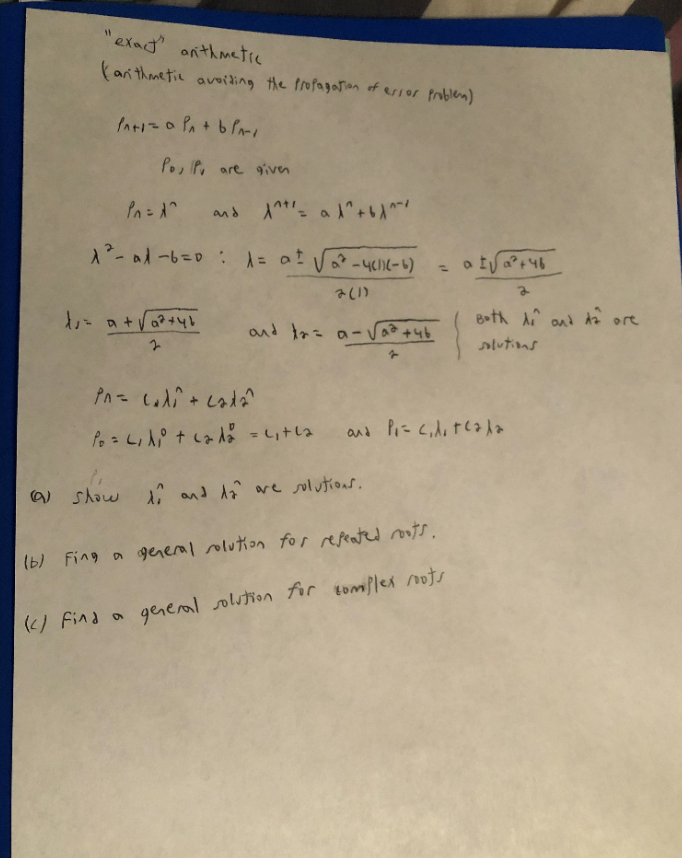 "exact" arithmetic
(arithmetic avoiding the propagation of error problem)
Pn+1 = a Pn + b Pn-1
P0, P1 are given
Pn = λ^n and λ^n+1 = a λ^n + b λ^n-1
λ² - aλ - b = 0 : λ = a ± √(a² - 4(1)(-b)) / 2(1) = a ± √(a² + 4b) / 2
λ1 = a + √(a² + 4b) / 2 and λ2 = a - √(a² + 4b) / 2 { Both λ1^n and λ2^n are
solutions
Pn = C1λ1^n + C2λ2^n
P0 = C1λ1^0 + C2λ2^0 = C1 + C2 and P1 = C1λ1 + C2λ2
(a) show λ1^n and λ2^n are solutions.
(b) Fing a general solution for repeated roots.
(c) Find a general solution for complex roots